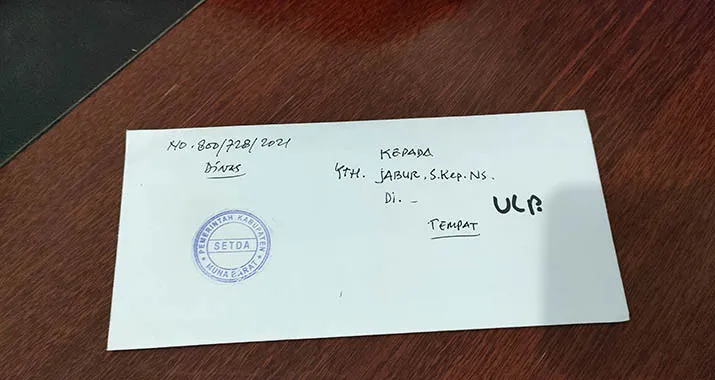 NO. 800/728/2021
DINAS
KEPADA
YTH. JABUR, S.Kep.NS.
Di. -
TEMPAT
ULP.
PEMERINTAH KABUPATEN
SETDA
MUNA BARAT